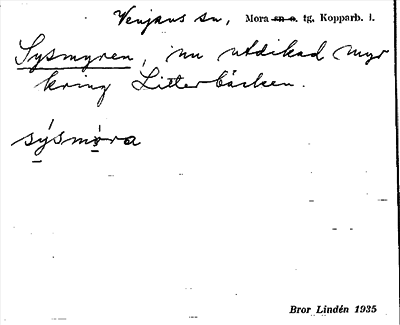 Venjans sn, Mora sn o. tg, Kopparb. l.
Sysmyren, nu utdikad myr
kring Litterbäcken.
sýsmóra
Bror Lindén 1935